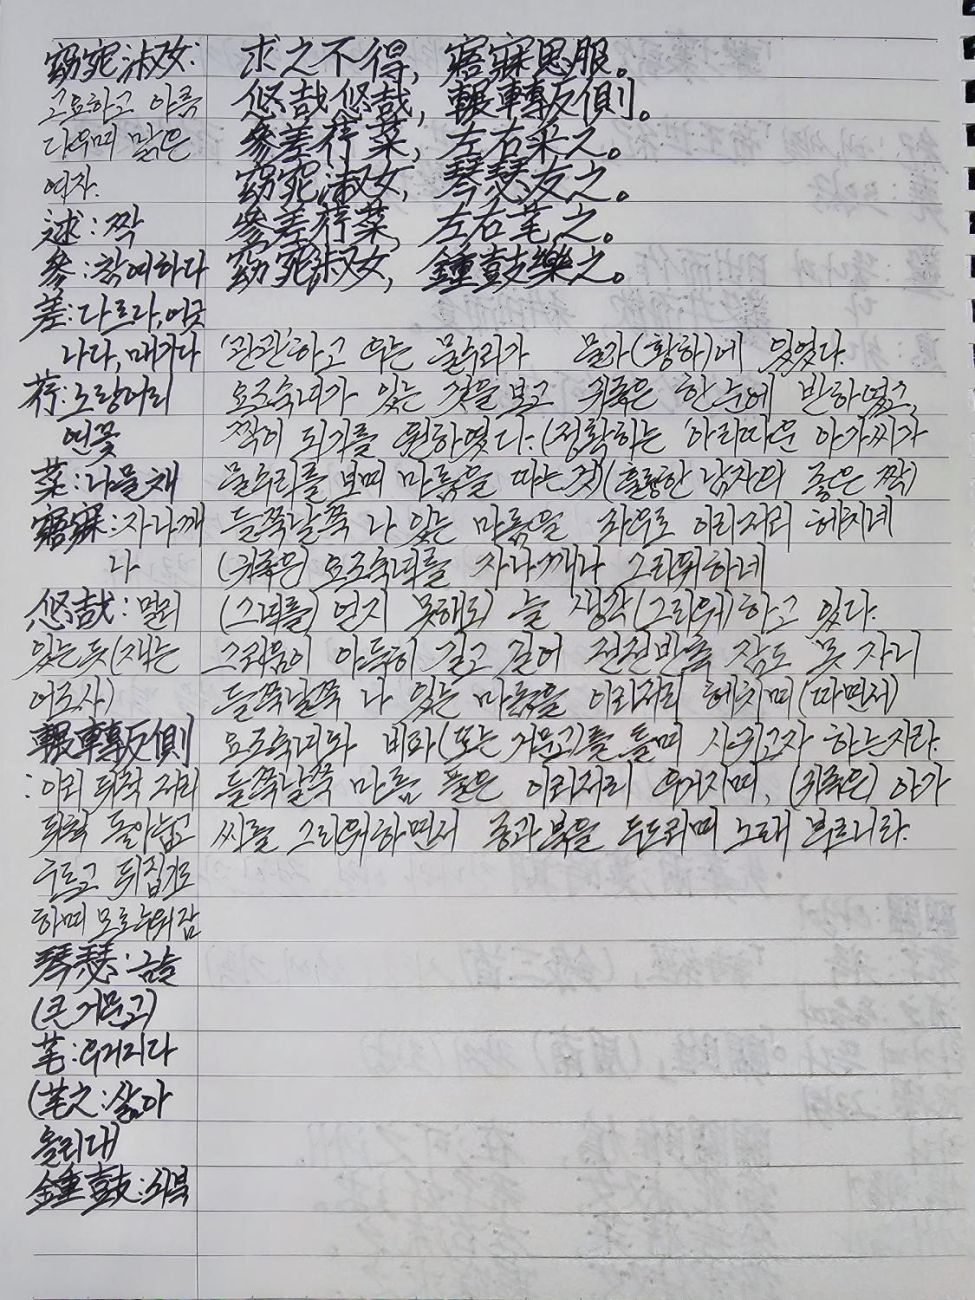 窈窕淑女:
고요하고 아름
다우며 맑은
여자.
逑: 짝
參: 참여하다
差: 다르다, 어긋
나다, 매기다
荇: 노랑어리
연꽃
菜: 나물 채
寤寐: 자나깨
나
悠哉: 멀리
있는 듯(재는
어조사)
輾轉反側
: 이리 뒤척 저리
뒤척 돌아눕고
구르고 뒤집기도
하며 모로 누워 잠
琴瑟: 금슬
(큰 거문고)
芼: 우거지다
(芼之: 삶아
올리다)
鍾鼓: 쇠북
求之不得, 寤寐思服。
悠哉悠哉, 輾轉反側。
參差荇菜, 左右采之。
窈窕淑女, 琴瑟友之。
參差荇菜, 左右芼之。
窈窕淑女, 鍾鼓樂之。
'관관'하고 우는 물수리가 물가(황하)에 있었다.
요조숙녀가 있는 것을 보고 귀족은 한눈에 반하였고,
짝이 되기를 원하였다. (정확히는 아리따운 아가씨가
물수리를 보며 마름을 따는 것)(훌륭한 남자의 좋은 짝)
들쭉날쭉 나 있는 마름을 좌우로 이리저리 헤치네
(귀족은) 요조숙녀를 자나깨나 그리워하네
(그녀를) 얻지 못해도 늘 생각(그리워)하고 있다.
그리움이 아득히 길고 길어 전전반측 잠도 못 자니
들쭉날쭉 나 있는 마름을 이리저리 헤치며 (따면서)
요조숙녀와 비파(또는 거문고)를 들며 사귀고자 하는지라.
들쭉날쭉 마름 풀은 이리저리 우거지며, (귀족은) 아가
씨를 그리워하면서 종과 북을 두드리며 노래 부르니라.